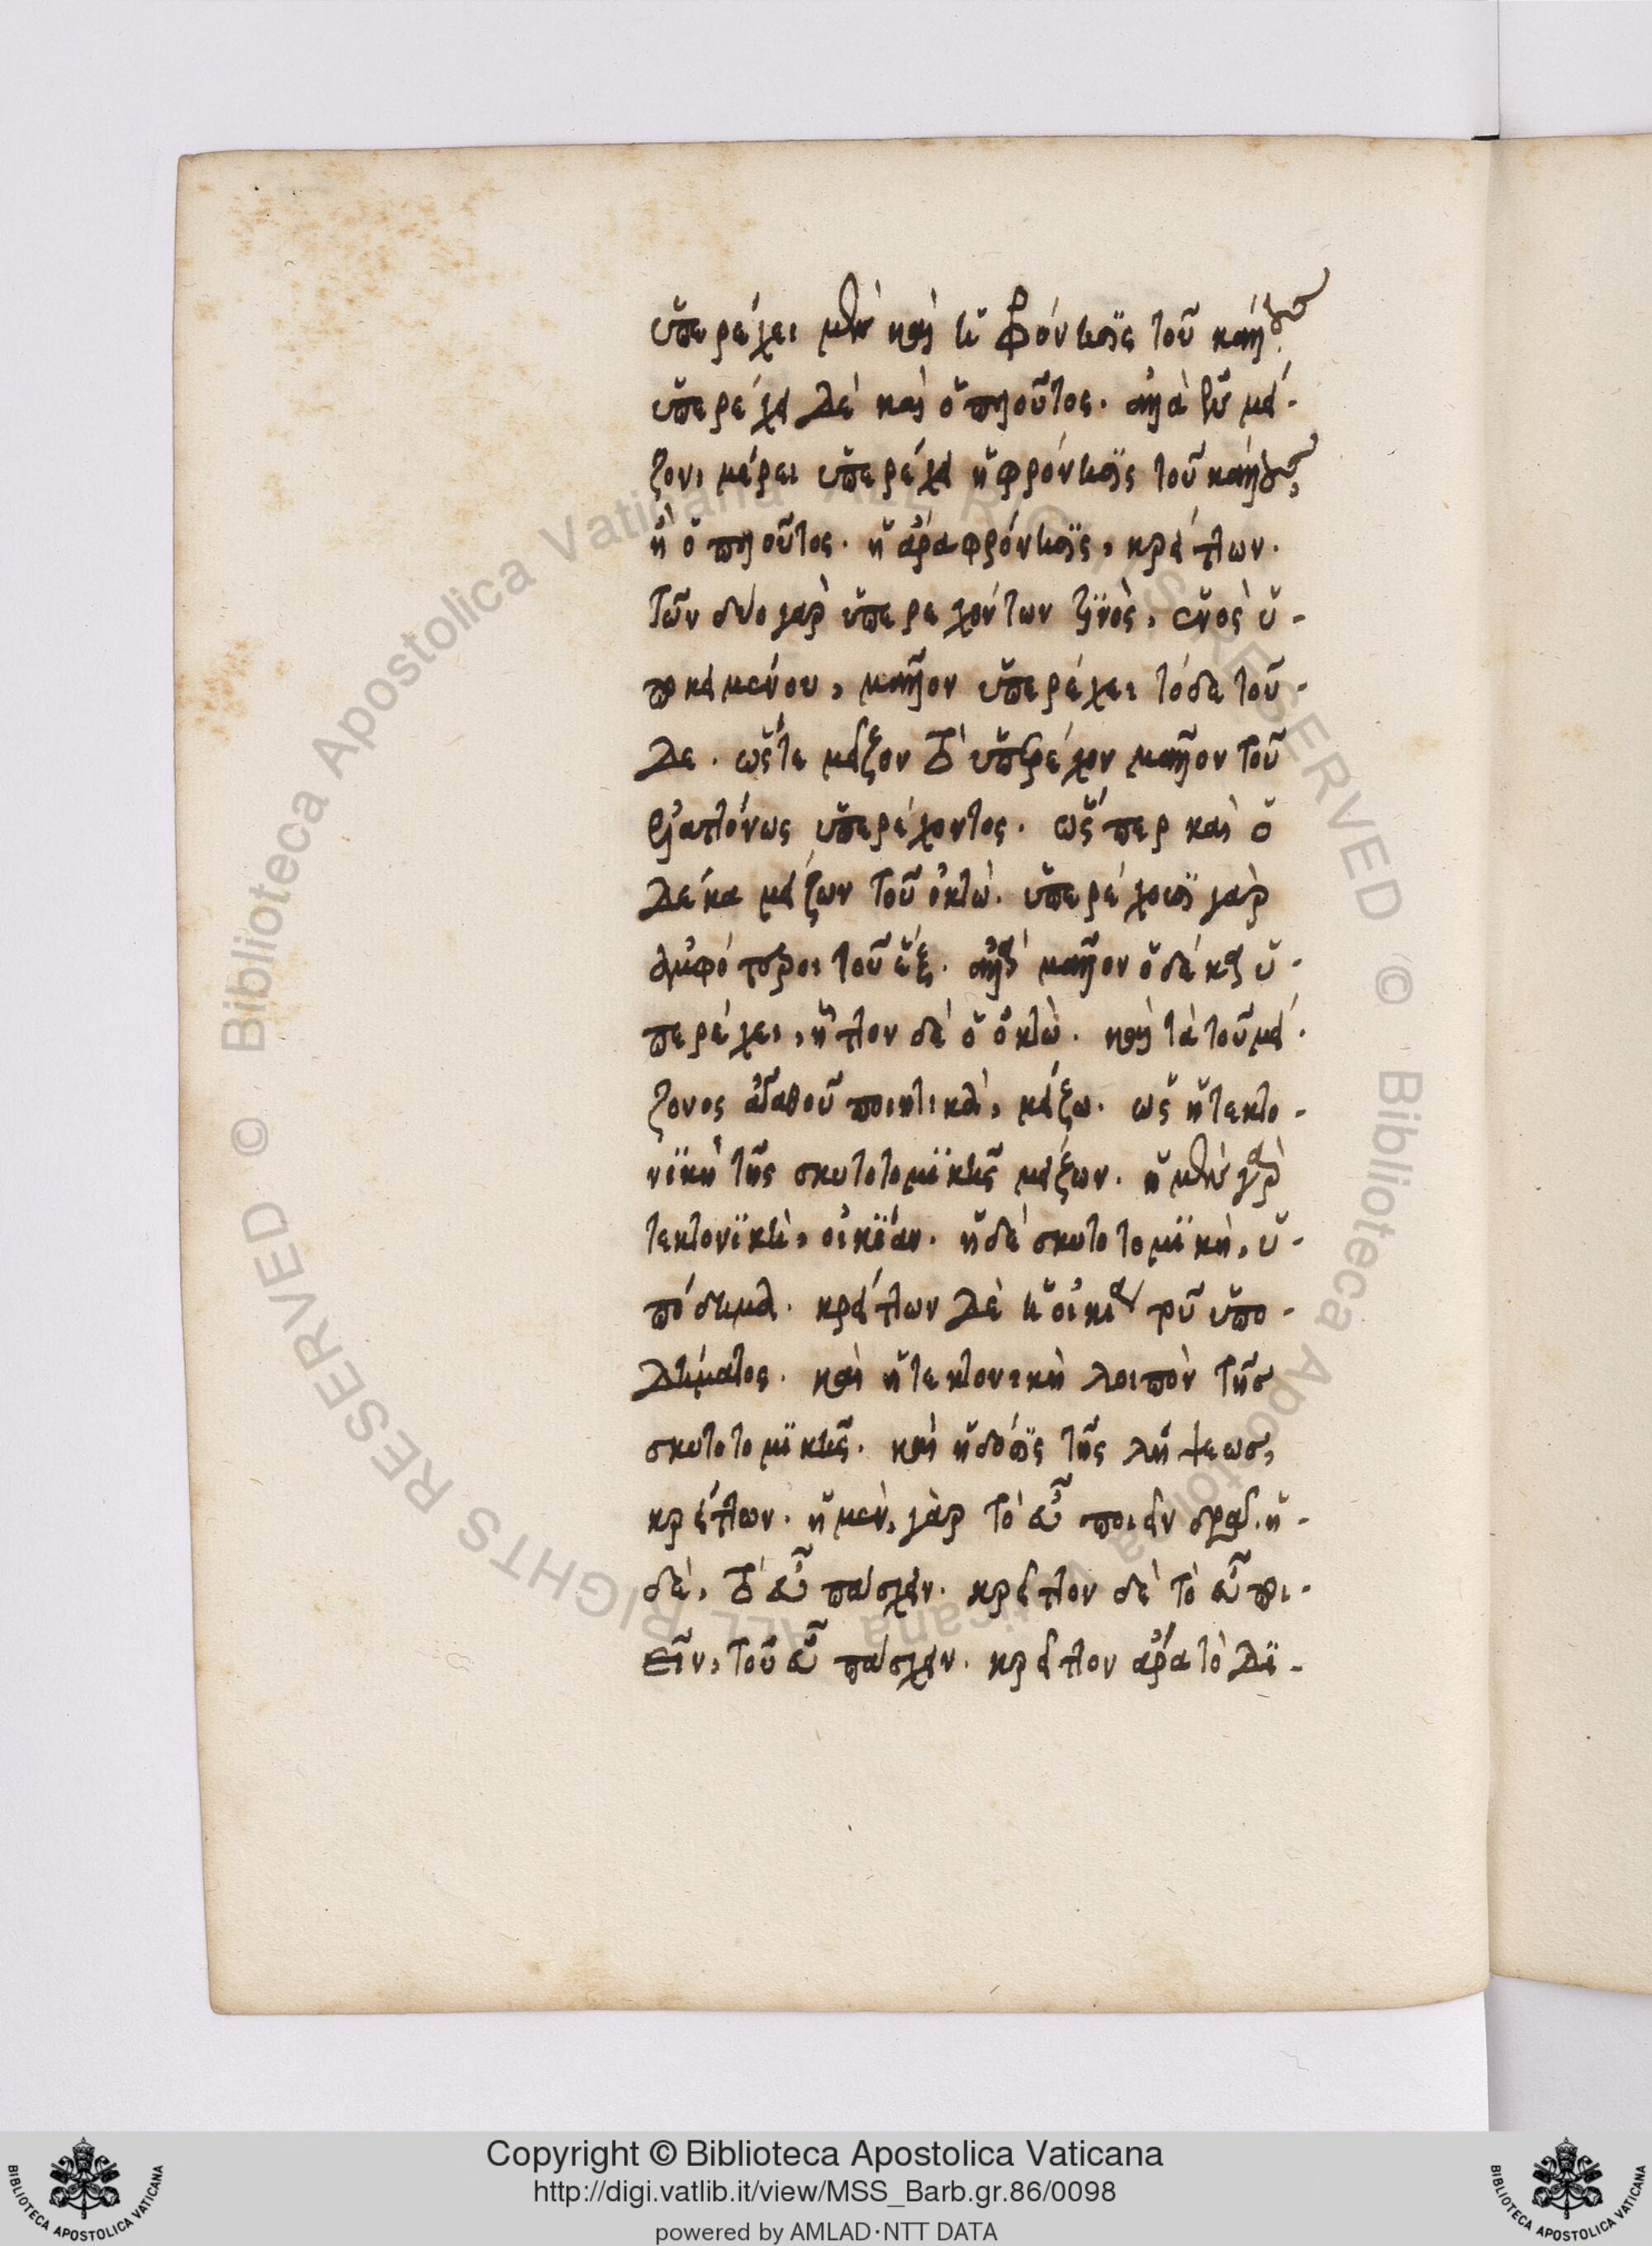 ὑπερέχει μὲν καὶ ἡ φρόνησϊς τοῦ κάλλους
ὑπερέχει δὲ καὶ ὁ πλοῦτος. ἀλλὰ τῷ μεί-
ζονι μέρει ὑπερέχει ἡ φρόνησϊς τοῦ κάλλους,
ἢ ὁ πλοῦτος. ἡ ἄρα φρόνησϊς, κρείττων.
τῶν δύο γὰρ ὑπερεχόντων τϊνὸς, ἑνὸς ὑ-
ποκειμένου, μᾶλλον ὑπερέχει τόδε τοῦ-
δε. ὥστε μεῖζον τὸ ὑπερέχον μᾶλλον τοῦ
ἐλαττόνως ὑπερέχοντος. ὥσπερ καὶ ὁ
δέκα μείζων τοῦ ὀκτώ. ὑπερέχουσϊ γὰρ
ἀμφότεροι τοῦ ἕξ. ἀλλὰ μᾶλλον ὁ δέκα ὑ-
περέχει, ἧττον δὲ ὁ ὀκτώ. καὶ τὰ τοῦ μεί-
ζονος ἀγαθοῦ ποιητικὰ, μείζω. ὡς ἡ τεκτο-
νϊκὴ τῆς σκυτοτομϊκῆς μείζων. ἡ μὲν γὰρ
τεκτονϊκὴ, οἰκϊαν. ἡ δὲ σκυτοτομϊκὴ, ὑ-
πόδημα. κρείττων δὲ ἡ οἰκία τοῦ ὑπο-
δήματος. καὶ ἡ τεκτονικὴ λοιπὸν τῆς
σκυτοτομϊκῆς. καὶ ἡ δόσϊς τῆς λήψεως,
κρείττων. ἡ μὲν, γὰρ τὸ εὖ ποιεῖν δρᾷ. ἡ-
δὲ, τὸ εὖ πάσχειν. κρεῖττον δὲ τὸ εὖ ποι-
εῖν, τοῦ εὖ πάσχειν. κρεῖττον ἄρα τὸ δϊ-
Copyright © Biblioteca Apostolica Vaticana
http://digi.vatlib.it/view/MSS_Barb.gr.86/0098
powered by AMLAD·NTT DATA
BIBLIOTECA APOSTOLICA VATICANA
BIBLIOTECA APOSTOLICA VATICANA
© Biblioteca Apostolica Vaticana ALL RIGHTS RESERVED © Biblioteca Apostolica Vaticana ALL RIGHTS RESERVED